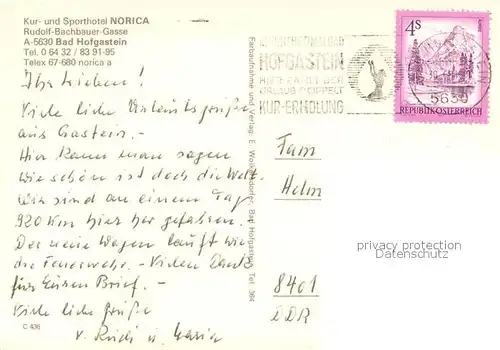 Kur- und Sporthotel NORICA
Rudolf-Bachbauer-Gasse
A-5630 Bad Hofgastein
Tel. 0 64 32 / 83 91-95
Telex 67-680 norica a
Ihr Lieben!
Viele liebe Urlaubsgrüße
aus Gastein.
Hier kann man sagen
wie schön ist doch die Welt.
Wir sind an einem Tag
920 Km hier her gefahren.
Der neie Wagen läuft wie
die Feuerwehr. - Vielen Dank
für Euren Brief. -
Viele liebe Grüße
v. Rudi u. Maria
C 436
Farbaufnahme und Verlag: E. Bad Hofgastein, Tel. 364
HOFGASTEIN
HIER ZÄHLT DER
URLAUB DOPPELT
KUR-ERHOLUNG
4S
5630
REPUBLIK ÖSTERREICH
Fam
Helm
8401
DDR
privacy protection
Datenschutz